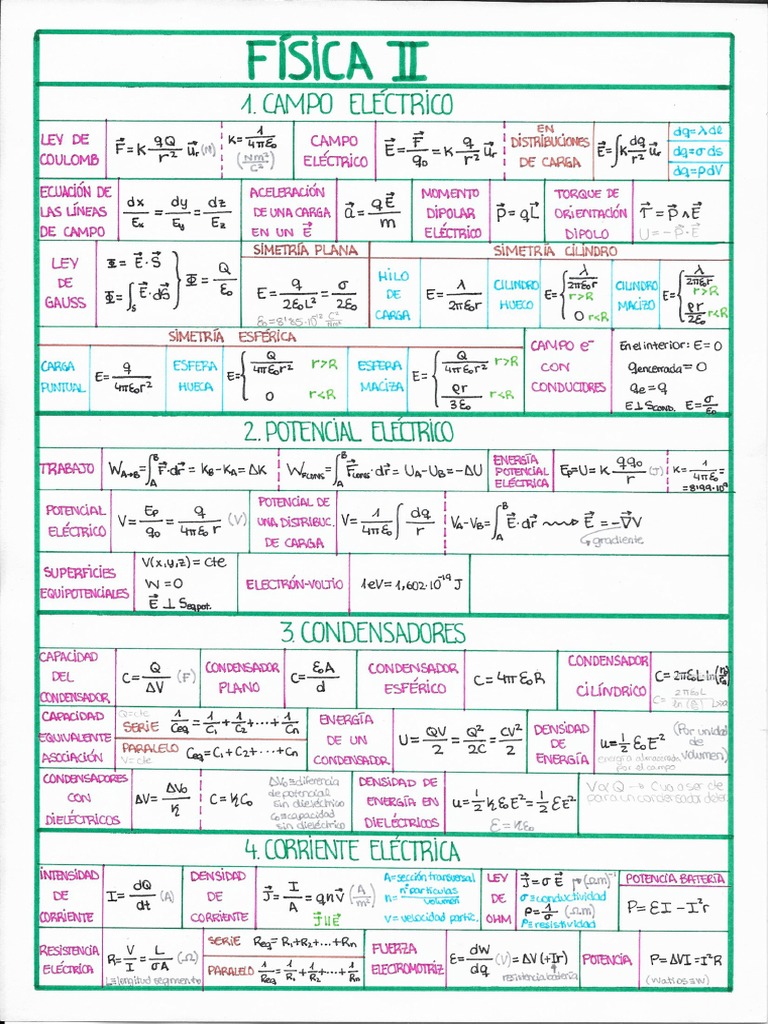 FÍSICA II
1. CAMPO ELÉCTRICO
LEY DE COULOMB
F⃗ = K qQ/r² u⃗r (N)
K = 1/4πε₀ (Nm²/C²)
CAMPO ELÉCTRICO
E⃗ = F⃗/q₀ = K q/r² u⃗r
EN DISTRIBUCIONES DE CARGA
E⃗ = ∫K dq/r² u⃗r
dq = λdl
dq = σds
dq = ρdV
ECUACIÓN DE LAS LÍNEAS DE CAMPO
dx/Ex = dy/Ey = dz/Ez
ACELERACIÓN DE UNA CARGA EN UN E⃗
a⃗ = qE⃗/m
MOMENTO DIPOLAR ELÉCTRICO
p⃗ = qL⃗
TORQUE DE ORIENTACIÓN DIPOLO
τ⃗ = p⃗ ∧ E⃗
U = -p⃗·E⃗
LEY DE GAUSS
Φ = E⃗·S⃗
Φ = ∫s E⃗·dS⃗
Φ = Q/ε₀
SIMETRÍA PLANA
E = q/2ε₀L² = σ/2ε₀
ε₀ = 8'85·10⁻¹² C²/Nm²
SIMETRÍA CILINDRO
HILO DE CARGA
E = λ/2πε₀r
CILINDRO HUECO
E = { λ/2πε₀r r>R
0 r<R
CILINDRO MACIZO
E = { λ/2πε₀r r>R
ρr/2ε₀ r<R
SIMETRÍA ESFÉRICA
CARGA PUNTUAL
E = q/4πε₀r²
ESFERA HUECA
E = { Q/4πε₀r² r>R
0 r<R
ESFERA MACIZA
E = { Q/4πε₀r² r>R
ρr/3ε₀ r<R
CAMPO e⁻ CON CONDUCTORES
En el interior: E = 0
qencerrada = 0
qe = q
E⊥Scond. E = σ/ε₀
2. POTENCIAL ELÉCTRICO
TRABAJO
WA→B = ∫A^B F⃗·dr⃗ = kB - kA = Δk
WFcons = ∫A^B F⃗cons·dr⃗ = UA - UB = -ΔU
ENERGÍA POTENCIAL ELÉCTRICA
Ep = U = K qq₀/r (J)
K = 1/4πε₀ = 8'99·10⁹
POTENCIAL ELÉCTRICO
V = Ep/q₀ = q/4πε₀r (V)
POTENCIAL DE UNA DISTRIBUC. DE CARGA
V = 1/4πε₀ ∫ dq/r
VA - VB = ∫A^B E⃗·dr⃗ ⟿ E⃗ = -∇⃗V
gradiente
SUPERFICIES EQUIPOTENCIALES
V(x,y,z) = cte
W = 0
E⃗ ⊥ Seqpot.
ELECTRÓN-VOLTIO
1eV = 1,602·10⁻¹⁹ J
3. CONDENSADORES
CAPACIDAD DEL CONDENSADOR
C = Q/ΔV (F)
CONDENSADOR PLANO
C = ε₀A/d
CONDENSADOR ESFÉRICO
C = 4πε₀R
CONDENSADOR CILÍNDRICO
C = 2πε₀L·ln
C = 2πε₀L
CAPACIDAD EQUIVALENTE ASOCIACIÓN
Q = cte
SERIE 1/Ceq = 1/C₁ + 1/C₂ + ··· + 1/Cn
PARALELO Ceq = C₁ + C₂ + ··· + Cn
V = cte
ENERGÍA DE UN CONDENSADOR
U = QV/2 = Q²/2C = CV²/2
DENSIDAD DE ENERGÍA
u = 1/2 ε₀E²
(Por unidad de volumen)
energía almacenada por el campo
CONDENSADORES CON DIELÉCTRICOS
ΔV = ΔV₀/K
C = KC₀
ΔV₀ ≡ diferencia de potencial sin dieléctrico
C₀ ≡ capacidad sin dieléctrico
DENSIDAD DE ENERGÍA EN DIELÉCTRICOS
u = 1/2 Kε₀E² = 1/2 εE²
ε = Kε₀
4. CORRIENTE ELÉCTRICA
INTENSIDAD DE CORRIENTE
I = dQ/dt (A)
DENSIDAD DE CORRIENTE
J⃗ = I/A = qnv⃗ (A/m²)
J⃗ ∥ E⃗
A = sección transversal
n = nº partículas/volumen
v = velocidad partíc.
LEY DE OHM
J⃗ = σE⃗ (Ω.m)⁻¹
σ ≡ conductividad
ρ = 1/σ (Ω.m)
ρ ≡ resistividad
POTENCIA BATERÍA
P = εI - I²r
RESISTENCIA ELÉCTRICA
R = V/I = L/σA (Ω)
L = longitud segmento
SERIE Req = R₁ + R₂ + ··· + Rn
PARALELO 1/Req = 1/R₁ + 1/R₂ + ··· + 1/Rn
FUERZA ELECTROMOTRIZ
ε = dW/dq (V) = ΔV (+Ir)
resistencia batería
POTENCIA
P = ΔVI = I²R
(Watios ≡ W)